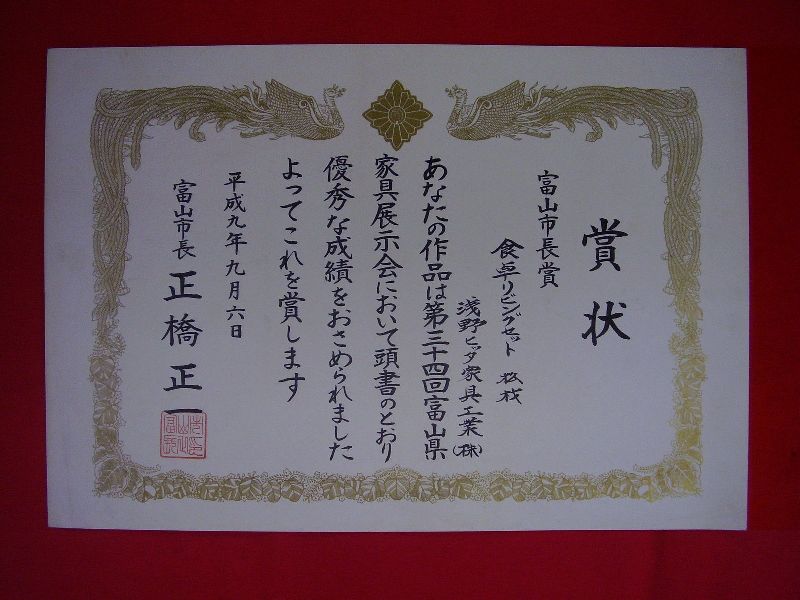 賞状
富山市長賞
食卓リビングセット 松材
浅野ヒダ家具工業(株)
あなたの作品は第三十四回富山県
家具展示会において頭書のとおり
優秀な成績をおさめられました
よってこれを賞します
平成九年九月六日
富山市長 正橋正一